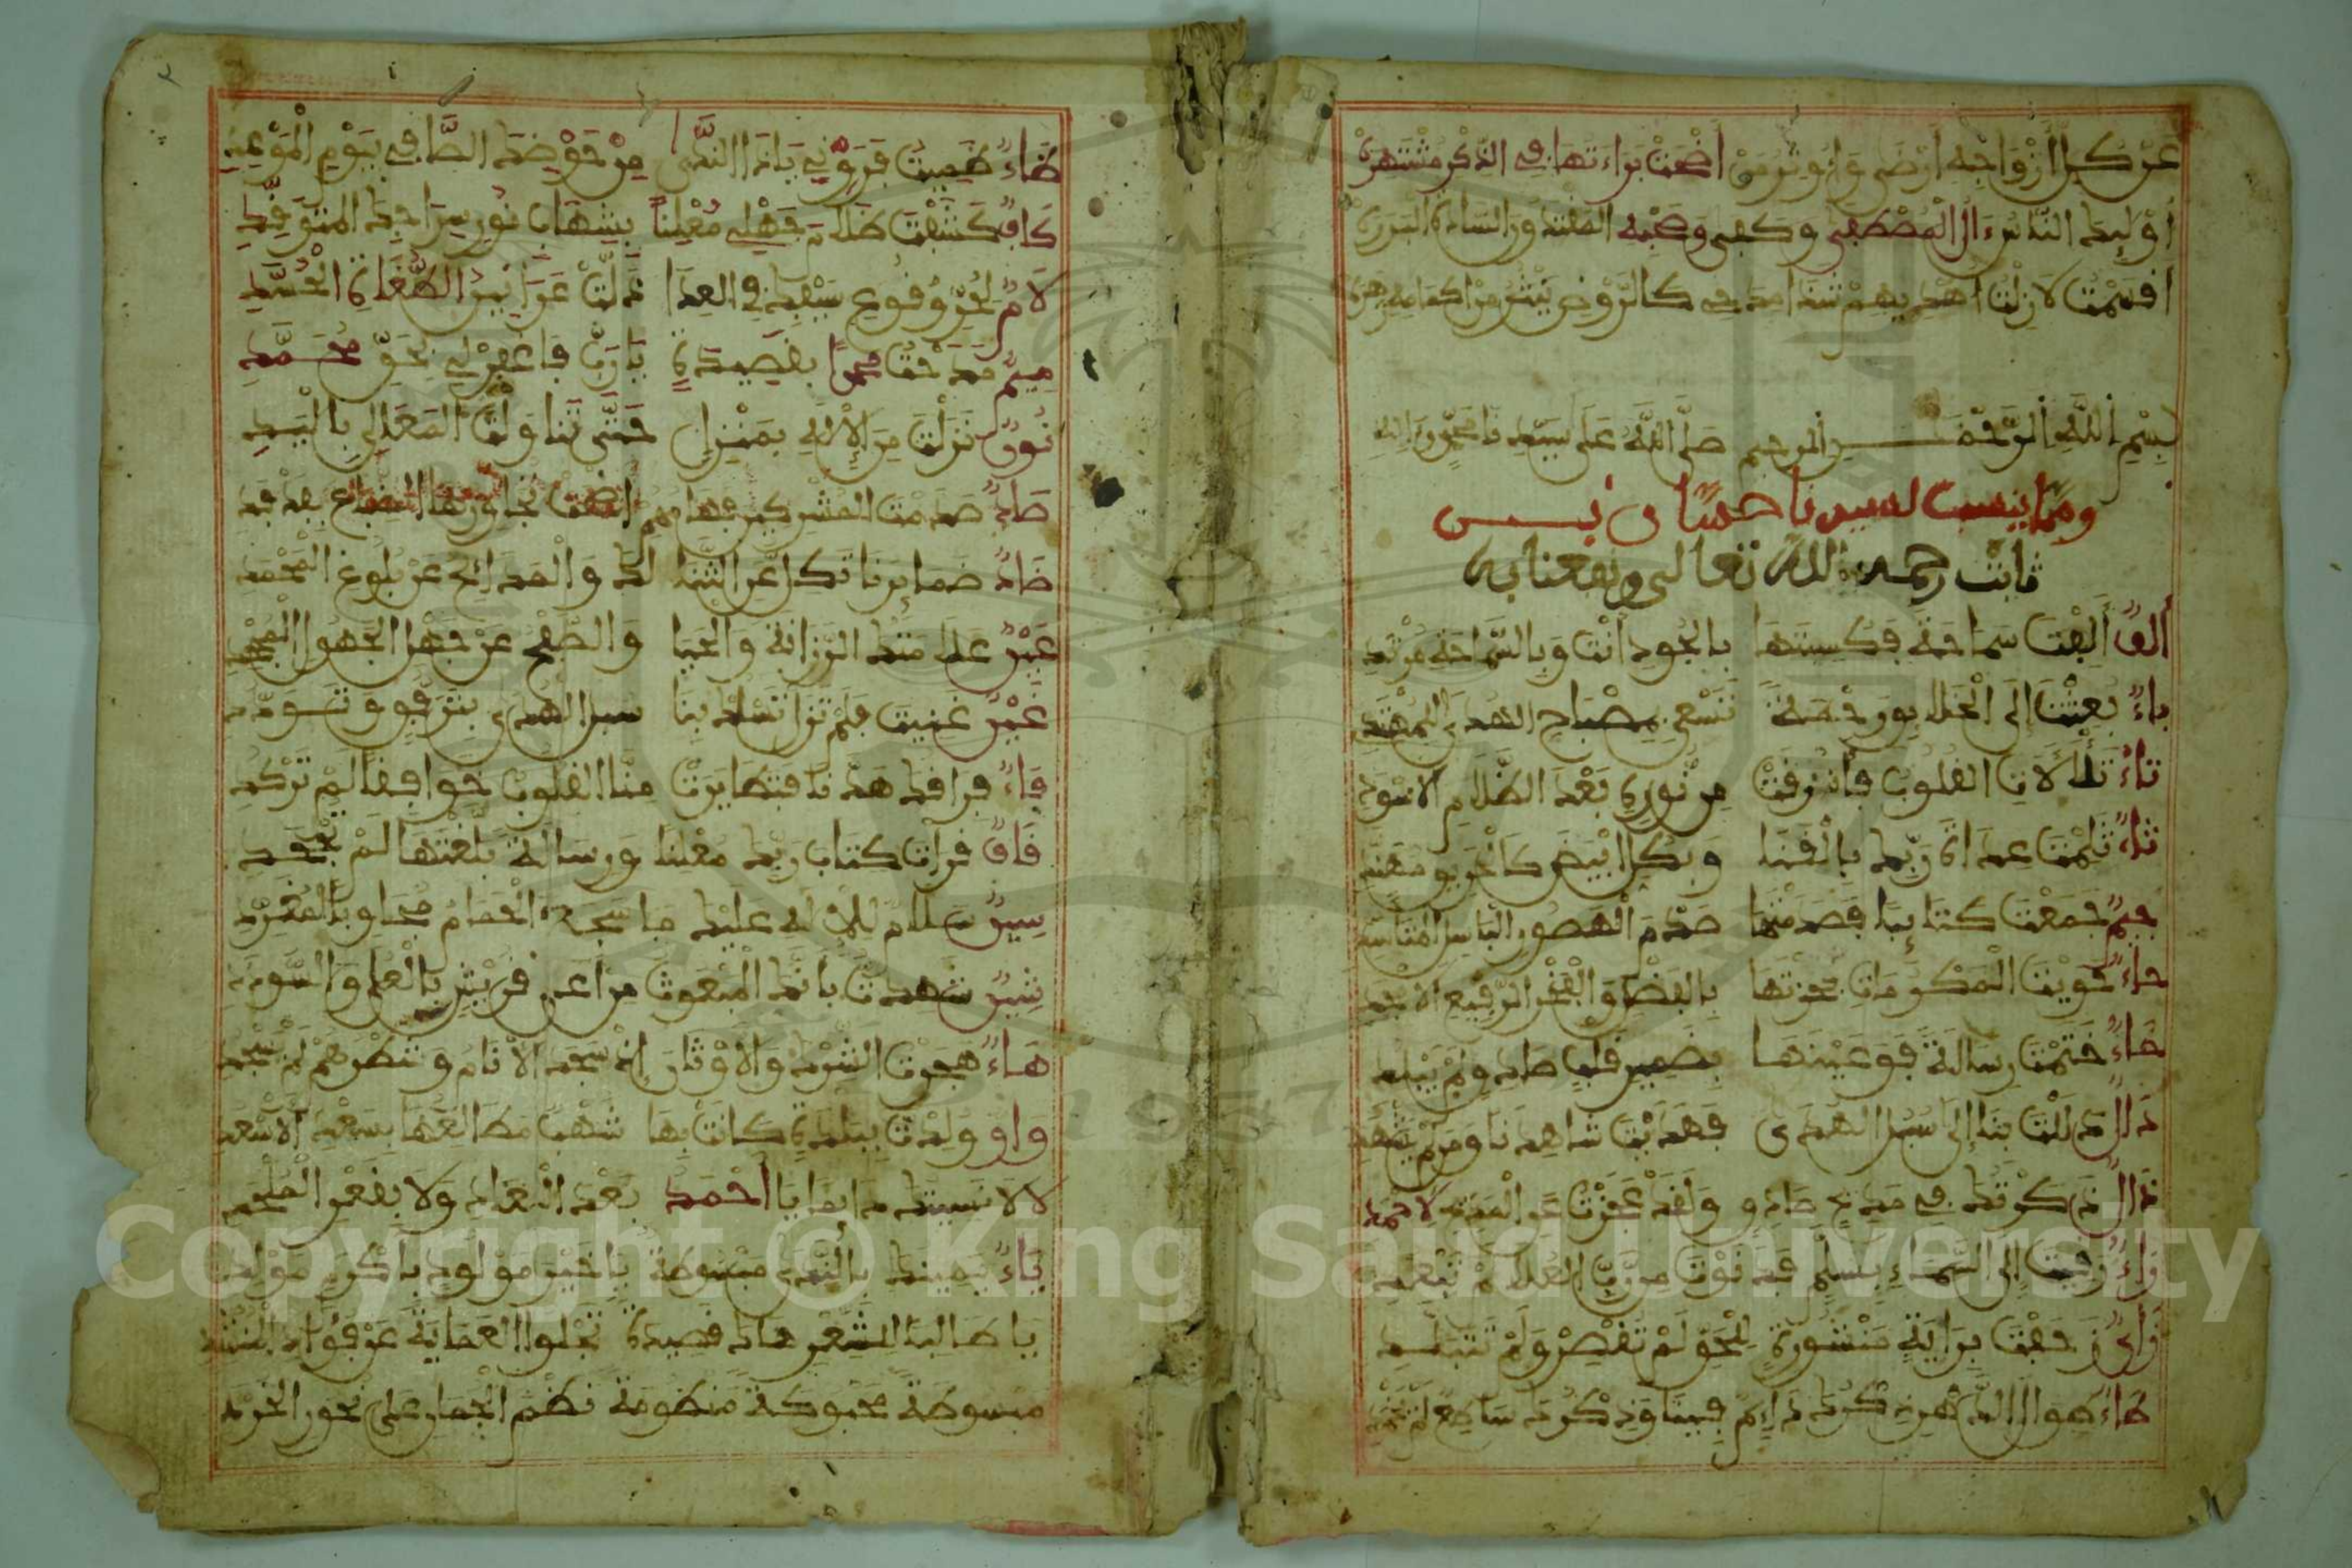 عن كل أزواجه أرضى وأوثر من أضحت براءتها في الذكر منتشره
أولئك الناس ءال المصطفى وكفى وصحبه المقتدون السادة البررة
أقسمت لا زلت أهديهم شذا مدحي كالروض ينثر من أكمامه زهره
بسم الله الرحمن الرحيم صلى الله على سيدنا محمد وءاله
ومما ينسب لسيدنا حسان بن
ثابت رحمه الله تعالى ونفعنا به
ألف ألفت سماحة فكسيتها بالجود أنت وبالسماحة مرتد
باء بعثت إلى الخلايق رحمة تسعى بمصباح الهدى للمهتد
تاء تلألات القلوب فأشرقت من نوره بعد الظلام الاسود
ثاء ثلمت عداة ربك بالقنا وبكل أبيض كالحريق مهند
جيم جمعت كتايبا فصدمتها صدم الهصور الباسل المتأسد
حاء حويت المكرمات بحوزتها بالفضل والفخر الرفيع الأمجد
خاء ختمت رسالة فوعيتها بضمير قلب صادق لم يبلد
دال دللت بنا إلى سبل الهدى فهديت شاهدنا ومن لم يشهد
ذال ذكرتك في مديح صادق ولقد عجزت عن المديح لاحمد
راء رقيت إلى السماء بسلم فدنوت من رب العلا لم تبعد
زاي زحفت براية منشورة للحق لم تقصر ولم تتبلد
طاء طوال الدهر ذكرك دايم فينا وذكرك ساطع لم يخمد
ظاء ظميت فروني يا ذا الندى من حوضك الطامي في يوم الموعد
كاف كشفت ظلام جهلي معلنا بشهاب نور سراجك المتوقد
لام لحر وقوع سيفه في العدا ذلت عرانين الطغاة الحسد
ميم مدحت محمدا بقصيدة يا رب فاغفر لي بحق محمد
نون نزلت من الإلاه بمنزل حتى تناولت المعالي باليد
صاد صدمت المشركين فهامهم أضحت تجاورها الضباع بفدفد
ضاد ضمايرنا تكل عن الثنا لك والمدايح عن بلوغ المحمد
عين علا منك الرزانة والحيا والصفح عن جهل الجهول المجهد
غين غنيت فلم تزل تسلك بنا سبل الهدى بترفق وتودد
فاء فراقك هدنا فتطايرت منا القلوب خوافقا لم تركد
قاف قرأت كتاب ربك معلنا ورسالة بلغتها لم تجحد
سين سلام للإلاه عليك ما سجع الحمام مجاوبا لمغرد
شين شهدت بأنك المبعوث من أعلى قريش بالعلى والسودد
هاء هجرت الشرك والأوثان إذ سجد الأنام وشطرهم لم تسجد
واو ولدت ببلدة كانت بها شهب مطالعها بسعد الأسعد
لا لا نسيتك دايما يا أحمد بعد البعاد ولا بقعر الملحد
ياء يمينك بالندى مبسوطة يا خير مولود بأكرم مولد
يا طالبا للشعر هاك قصيدة تجلو العماية عن فؤاد المنشد
مبسوطة محبوكة منظومة نظم الجمان على نحور الخرد
Copyright © King Saud University
1957